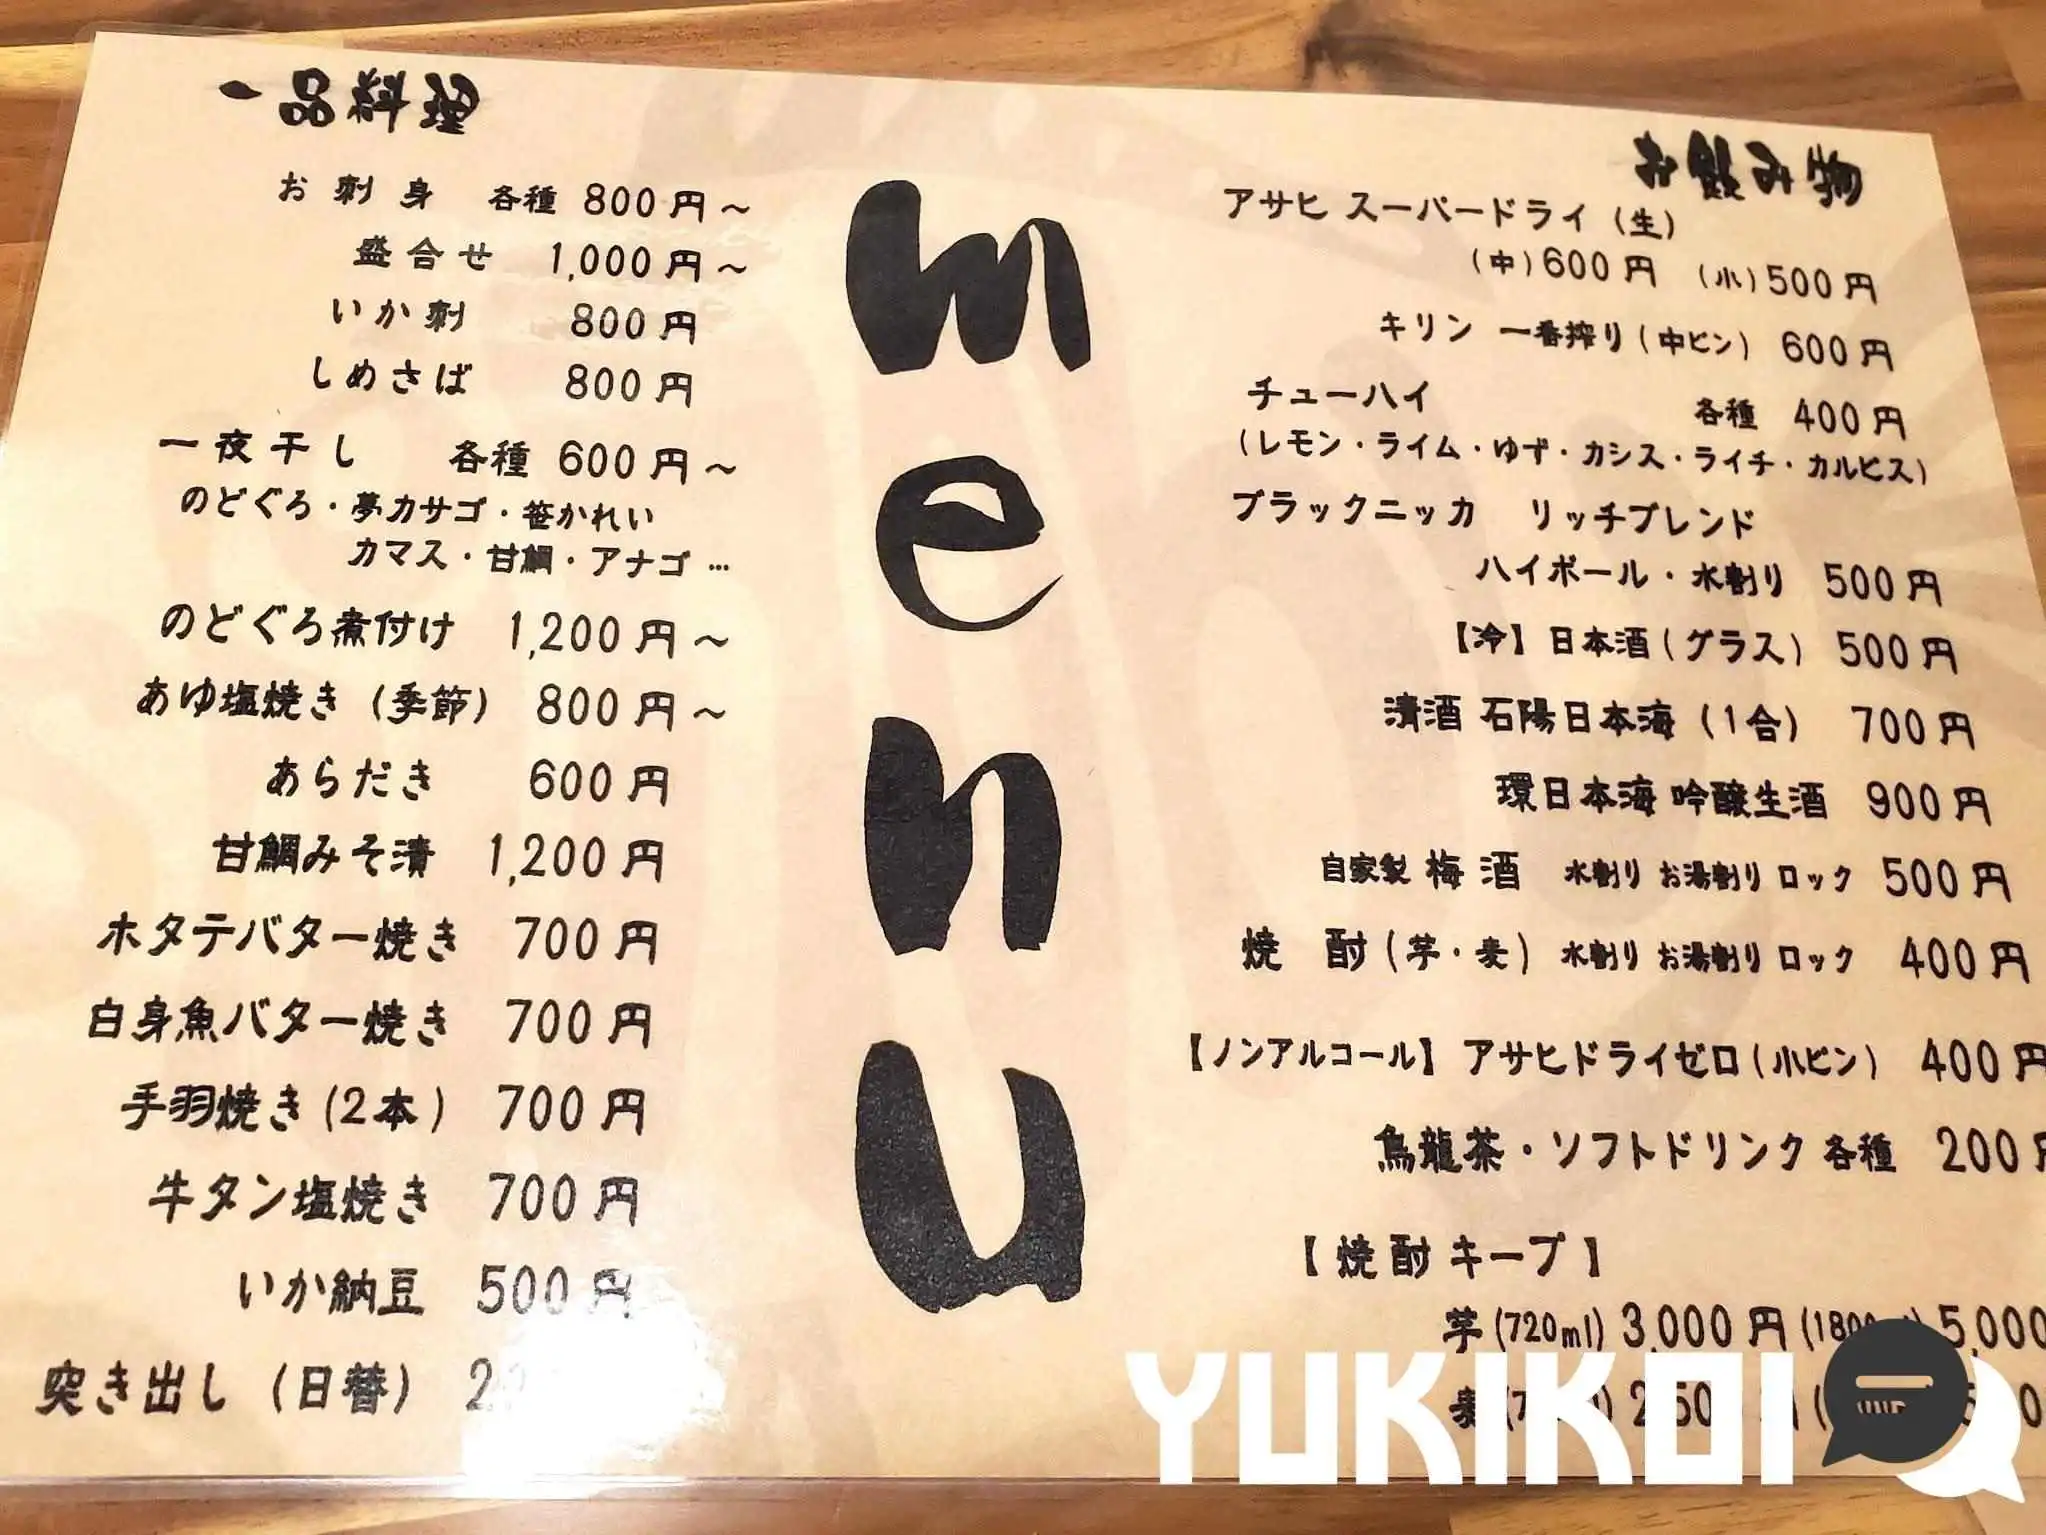 一品料理
お刺身 各種 800円～
盛合せ 1,000円～
いか刺 800円
しめさば 800円
一夜干し 各種 600円～
のどぐろ・夢カサゴ・笹かれい
カマス・甘鯛・アナゴ…
のどぐろ煮付け 1,200円～
あゆ塩焼き（季節） 800円～
あらだき 600円
甘鯛みそ漬 1,200円
ホタテバター焼き 700円
白身魚バター焼き 700円
手羽焼き（2本） 700円
牛タン塩焼き 700円
いか納豆 500円
突き出し（日替）
menu
お飲み物
アサヒ スーパードライ（生）
（中）600円 （小）500円
キリン 一番搾り（中ビン） 600円
チューハイ 各種 400円
（レモン・ライム・ゆず・カシス・ライチ・カルピス）
ブラックニッカ リッチブレンド
ハイボール・水割り 500円
【冷】日本酒（グラス） 500円
清酒 石陽日本海（1合） 700円
環日本海 吟醸生酒 900円
自家製 梅酒 水割り お湯割り ロック 500円
焼酎（芋・麦）水割り お湯割り ロック 400円
【ノンアルコール】アサヒドライゼロ（小ビン） 400円
烏龍茶・ソフトドリンク 各種 200円
【焼酎キープ】
芋（720ml）3,000円 5,000
麦
YUKIKOI